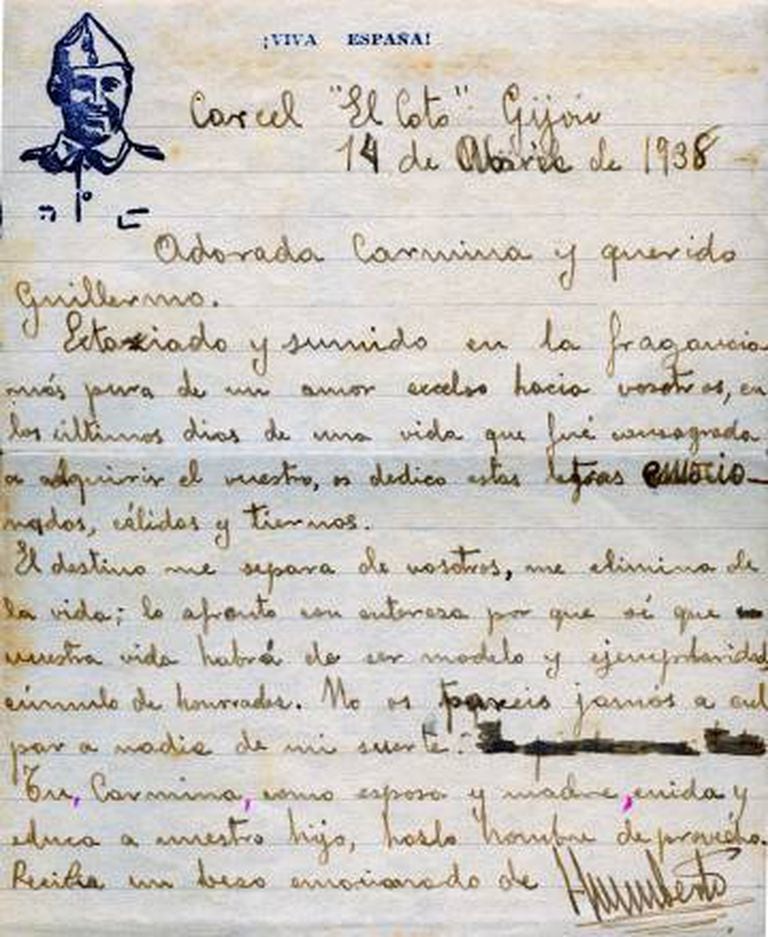 ¡VIVA ESPAÑA!
Carcel "El Coto" Gijón
14 de Abril de 1938
Adorada Carmina y querido
Guillermo.
Extaxiado y sumido en la fragancia
más pura de un amor excelso hacia vosotros, en
los últimos dias de una vida que fué consagrada
a adquirir el vuestro, os dedico estas letras emocio-
nadas, cálidas y tiernas.
El destino me separa de vosotros, me elimina de
la vida; lo afronto con entereza por que sé que
vuestra vida habrá de ser modelo y ejemplaridad
cúmulo de honradez. No os pareis jamás a cul
par a nadie de mi suerte.
Tu, Carmina, como esposa y madre, cuida y
educa a nuestro hijo, hazlo hombre de provecho.
Recibe un beso emocionado de Humberto